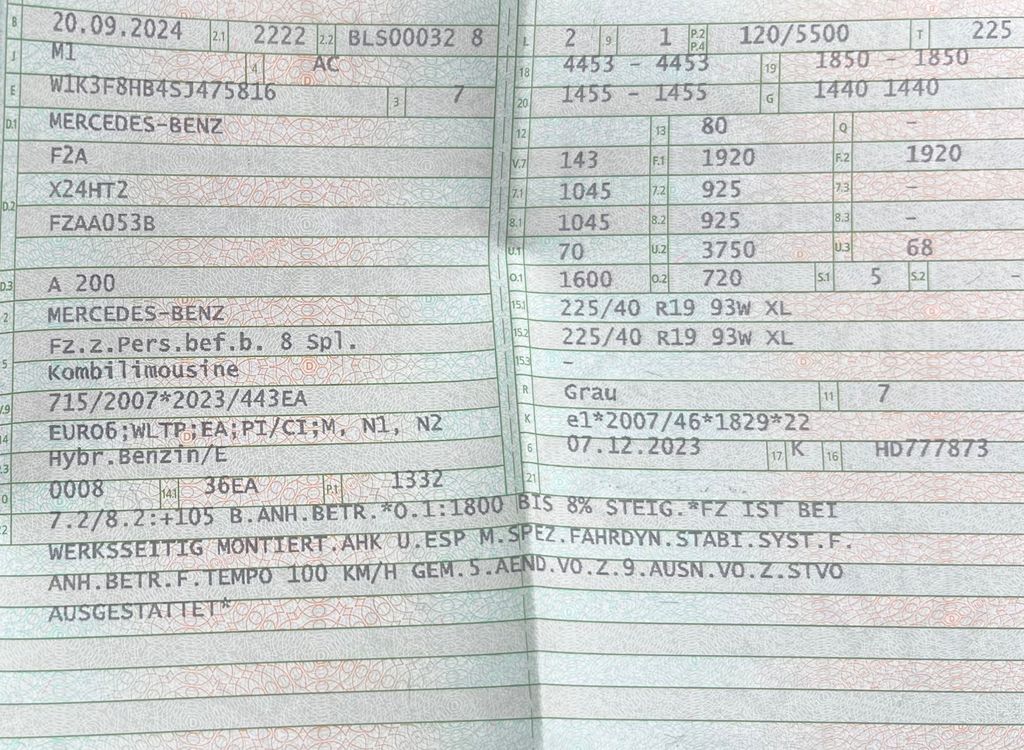 B 20.09.2024 2.1 2222 2.2 BLS00032 8
J M1 4 AC
E W1K3F8HB4SJ475816 3 7
D.1 MERCEDES-BENZ
F2A
D.2 X24HT2
FZAA053B
D.3 A 200
2 MERCEDES-BENZ
Fz.z.Pers.bef.b. 8 Spl.
5 Kombilimousine
V.9 715/2007*2023/443EA
14 EURO6;WLTP;EA;PI/CI;M, N1, N2
P.3 Hybr.Benzin/E
10 0008 14.1 36EA P.1 1332
L 2 9 1 P.2 P.4 120/5500 T 225
18 4453 - 4453 19 1850 - 1850
20 1455 - 1455 G 1440 1440
12 13 80 Q -
V.7 143 F.1 1920 F.2 1920
7.1 1045 7.2 925 7.3 -
8.1 1045 8.2 925 8.3 -
U.1 70 U.2 3750 U.3 68
O.1 1600 O.2 720 S.1 5 S.2 -
15.1 225/40 R19 93W XL
15.2 225/40 R19 93W XL
15.3 -
R Grau 11 7
K e1*2007/46*1829*22
6 07.12.2023 17 K 16 HD777873
21
22 7.2/8.2:+105 B.ANH.BETR.*O.1:1800 BIS 8% STEIG.*FZ IST BEI
WERKSSEITIG MONTIERT.AHK U.ESP M.SPEZ.FAHRDYN.STABI.SYST.F.
ANH.BETR.F.TEMPO 100 KM/H GEM.5.AEND.VO.Z.9.AUSN.VO.Z.STVO
AUSGESTATTET*